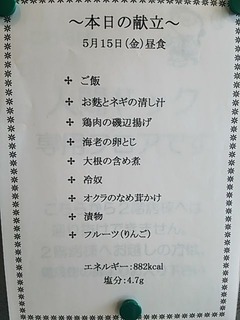 ～本日の献立～
5月15日(金)昼食
✢ ご飯
✢ お麩とネギの清し汁
✢ 鶏肉の磯辺揚げ
✢ 海老の卵とじ
✢ 大根の含め煮
✢ 冷奴
✢ オクラのなめ茸かけ
✢ 漬物
✢ フルーツ(りんご)
エネルギー:882kcal
塩分:4.7g